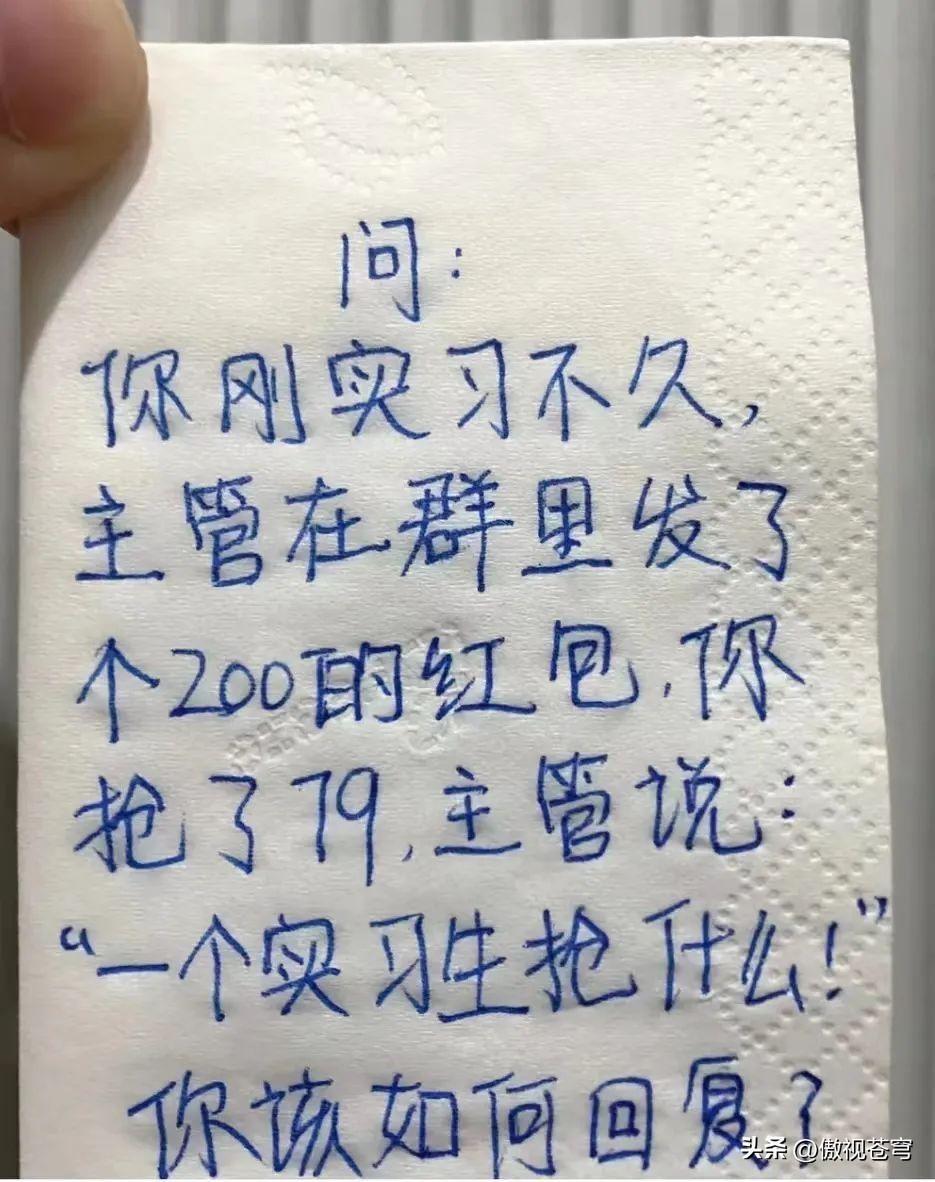 问:
你刚实习不久,
主管在群里发了
个200的红包,你
抢了79,主管说:
“一个实习生抢什么!”
你该如何回复?
头条 @傲视苍穹